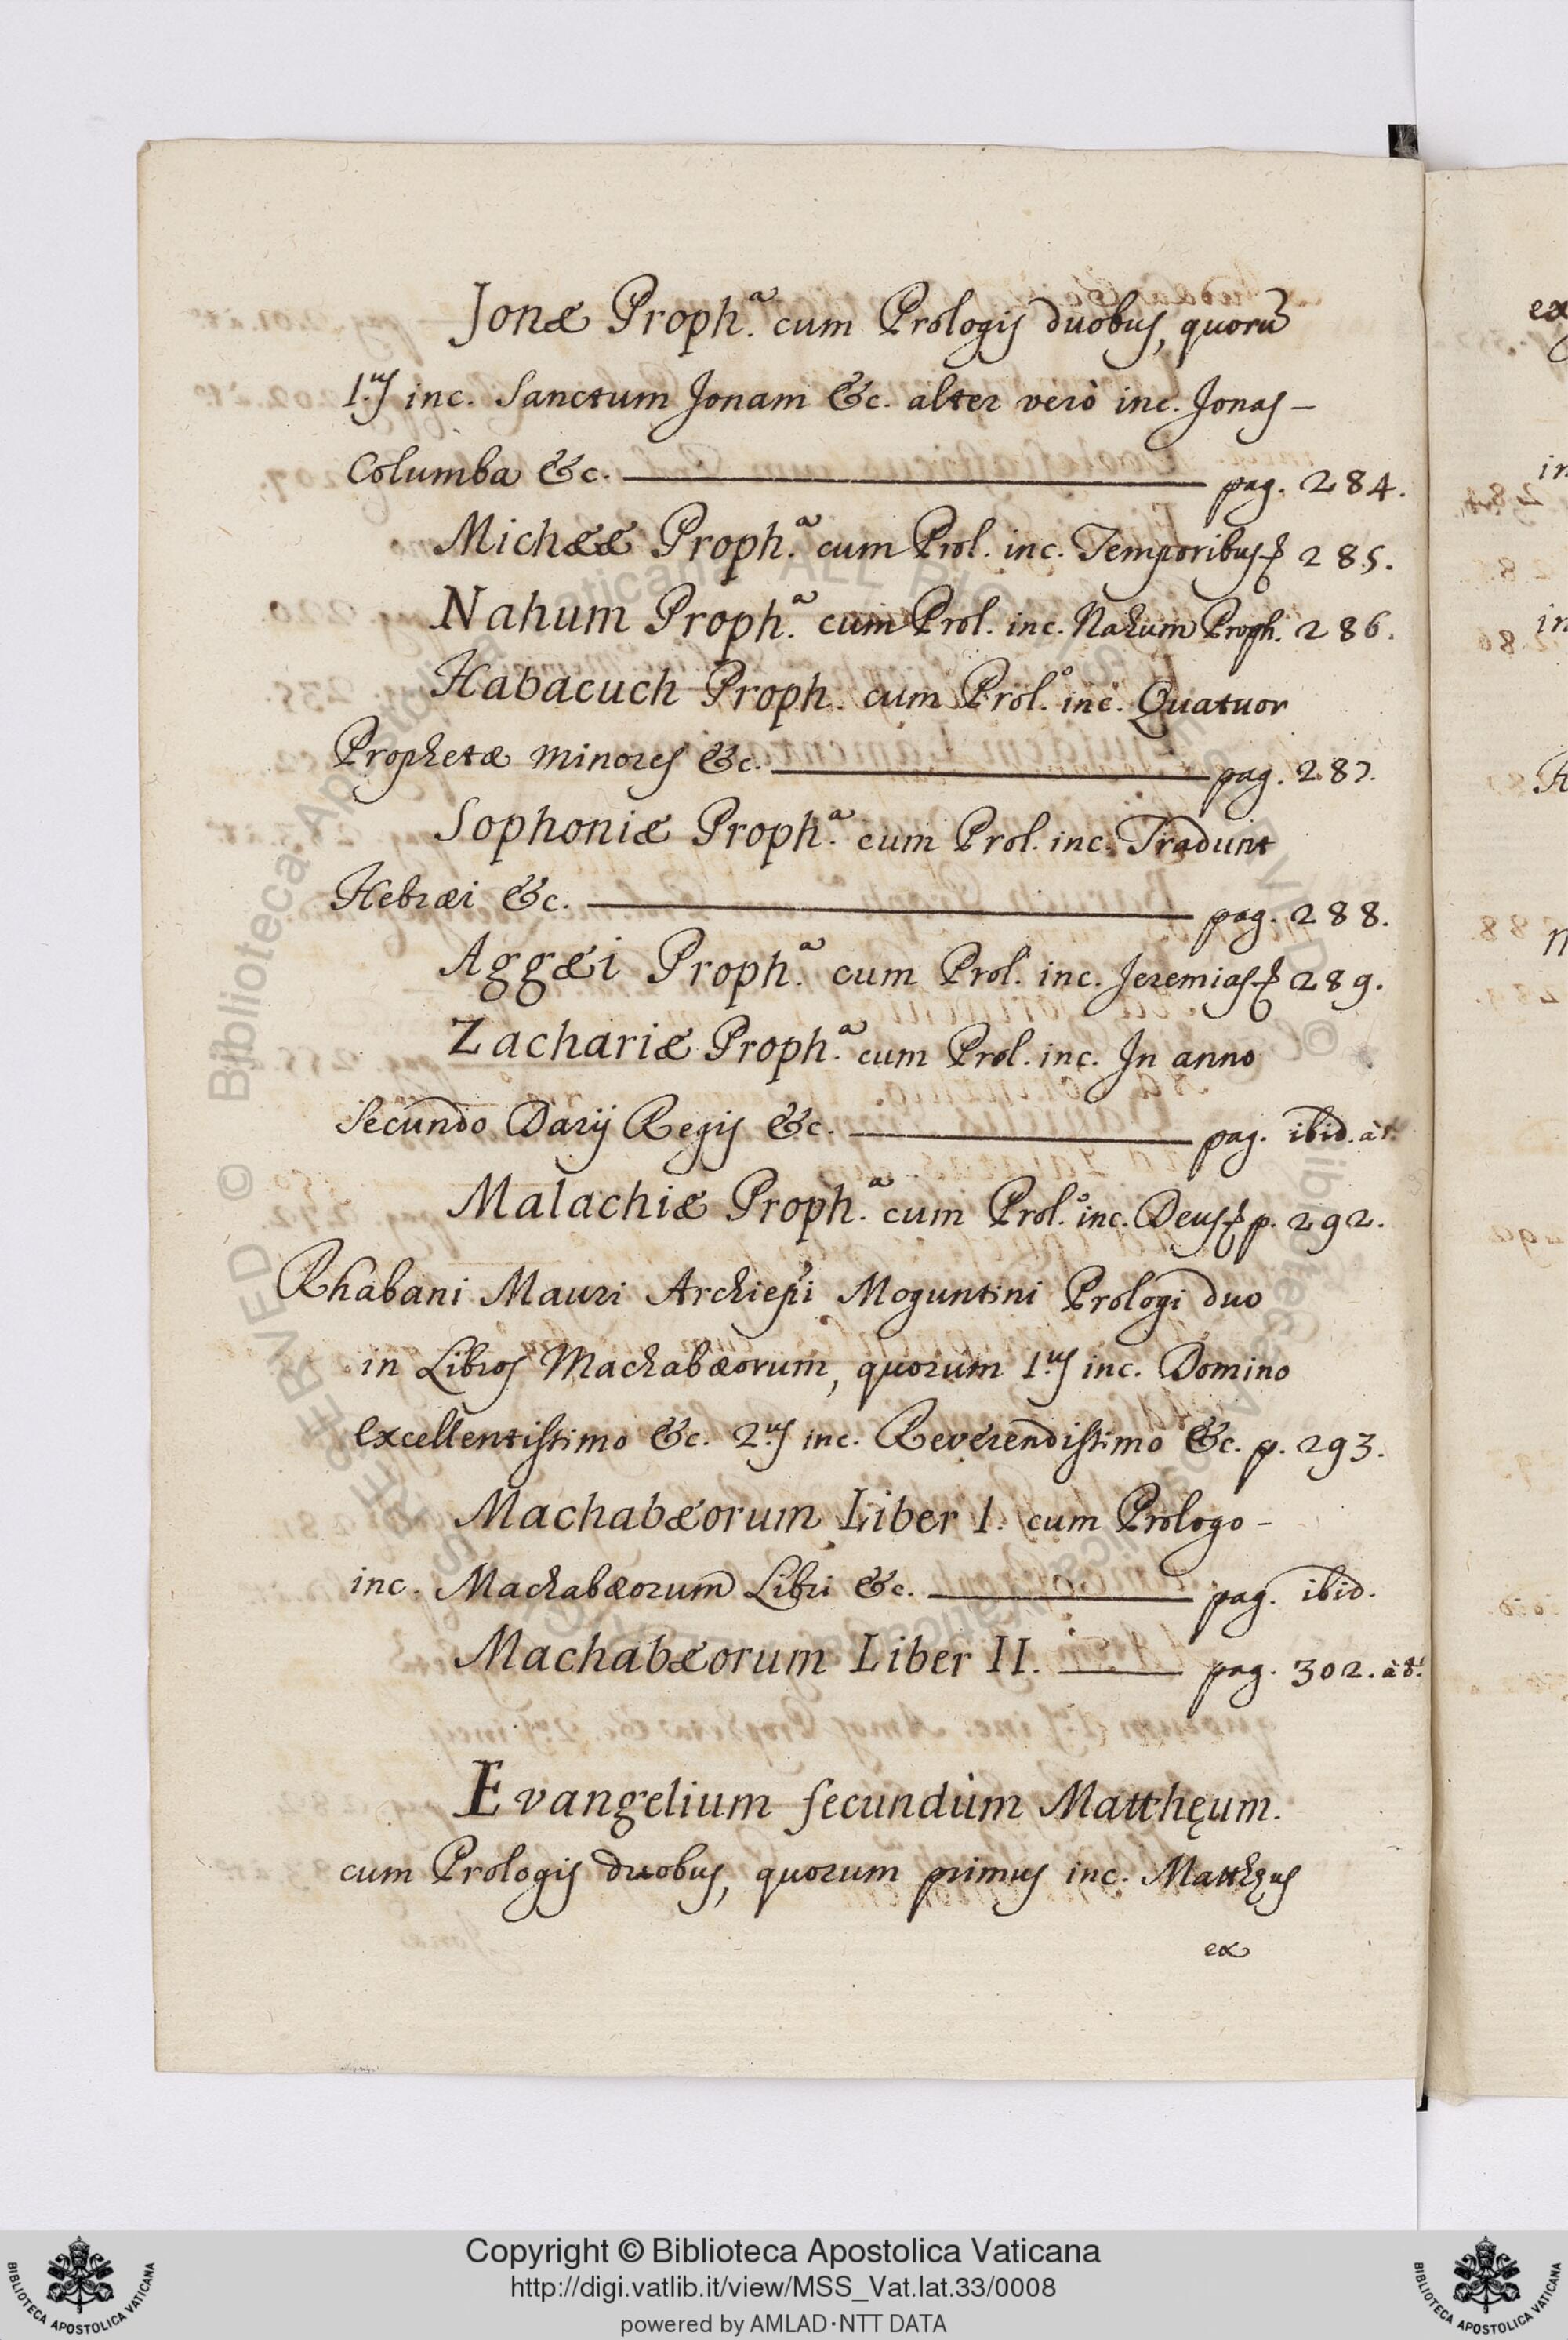 Jonæ Proph.ª cum Prologis duobus, quorũ
1.us inc. Sanctum Jonam &c. alter verò inc. Jonas –
Columba &c. ——— pag. 284.
Michææ Proph.ª cum Prol. inc. Temporibus 285.
Nahum Proph.ª cum Prol. inc. Nahum Proph. 286.
Habacuch Proph. cum Prol.º inc. Quatuor
Prophetæ minores &c. ——— pag. 287.
Sophoniæ Proph.ª cum Prol. inc. Tradunt
Hebræi &c. ——— pag. 288.
Aggæi Proph.ª cum Prol. inc. Jeremias 289.
Zachariæ Proph.ª cum Prol. inc. In anno
Secundo Darij Regis &c. ——— pag. ibid. à t.
Malachiæ Proph.ª cum Prol.º inc. Deus p. 292.
Rhabani Mauri Archiepi Moguntini Prologi duo
in Libros Machabæorum, quorum 1.us inc. Domino
excellentissimo &c. 2.us inc. Reverendissimo &c. p. 293.
Machabæorum Liber I. cum Prologo –
inc. Machabæorum Libri &c. ——— pag. ibid.
Machabæorum Liber II. ——— pag. 302. à t.
Evangelium secundùm Matthęum.
cum Prologis duobus, quorum primus inc. Matthęus
ex
Copyright © Biblioteca Apostolica Vaticana
http://digi.vatlib.it/view/MSS_Vat.lat.33/0008
powered by AMLAD·NTT DATA
BIBLIOTECA APOSTOLICA VATICANA
BIBLIOTECA APOSTOLICA VATICANA